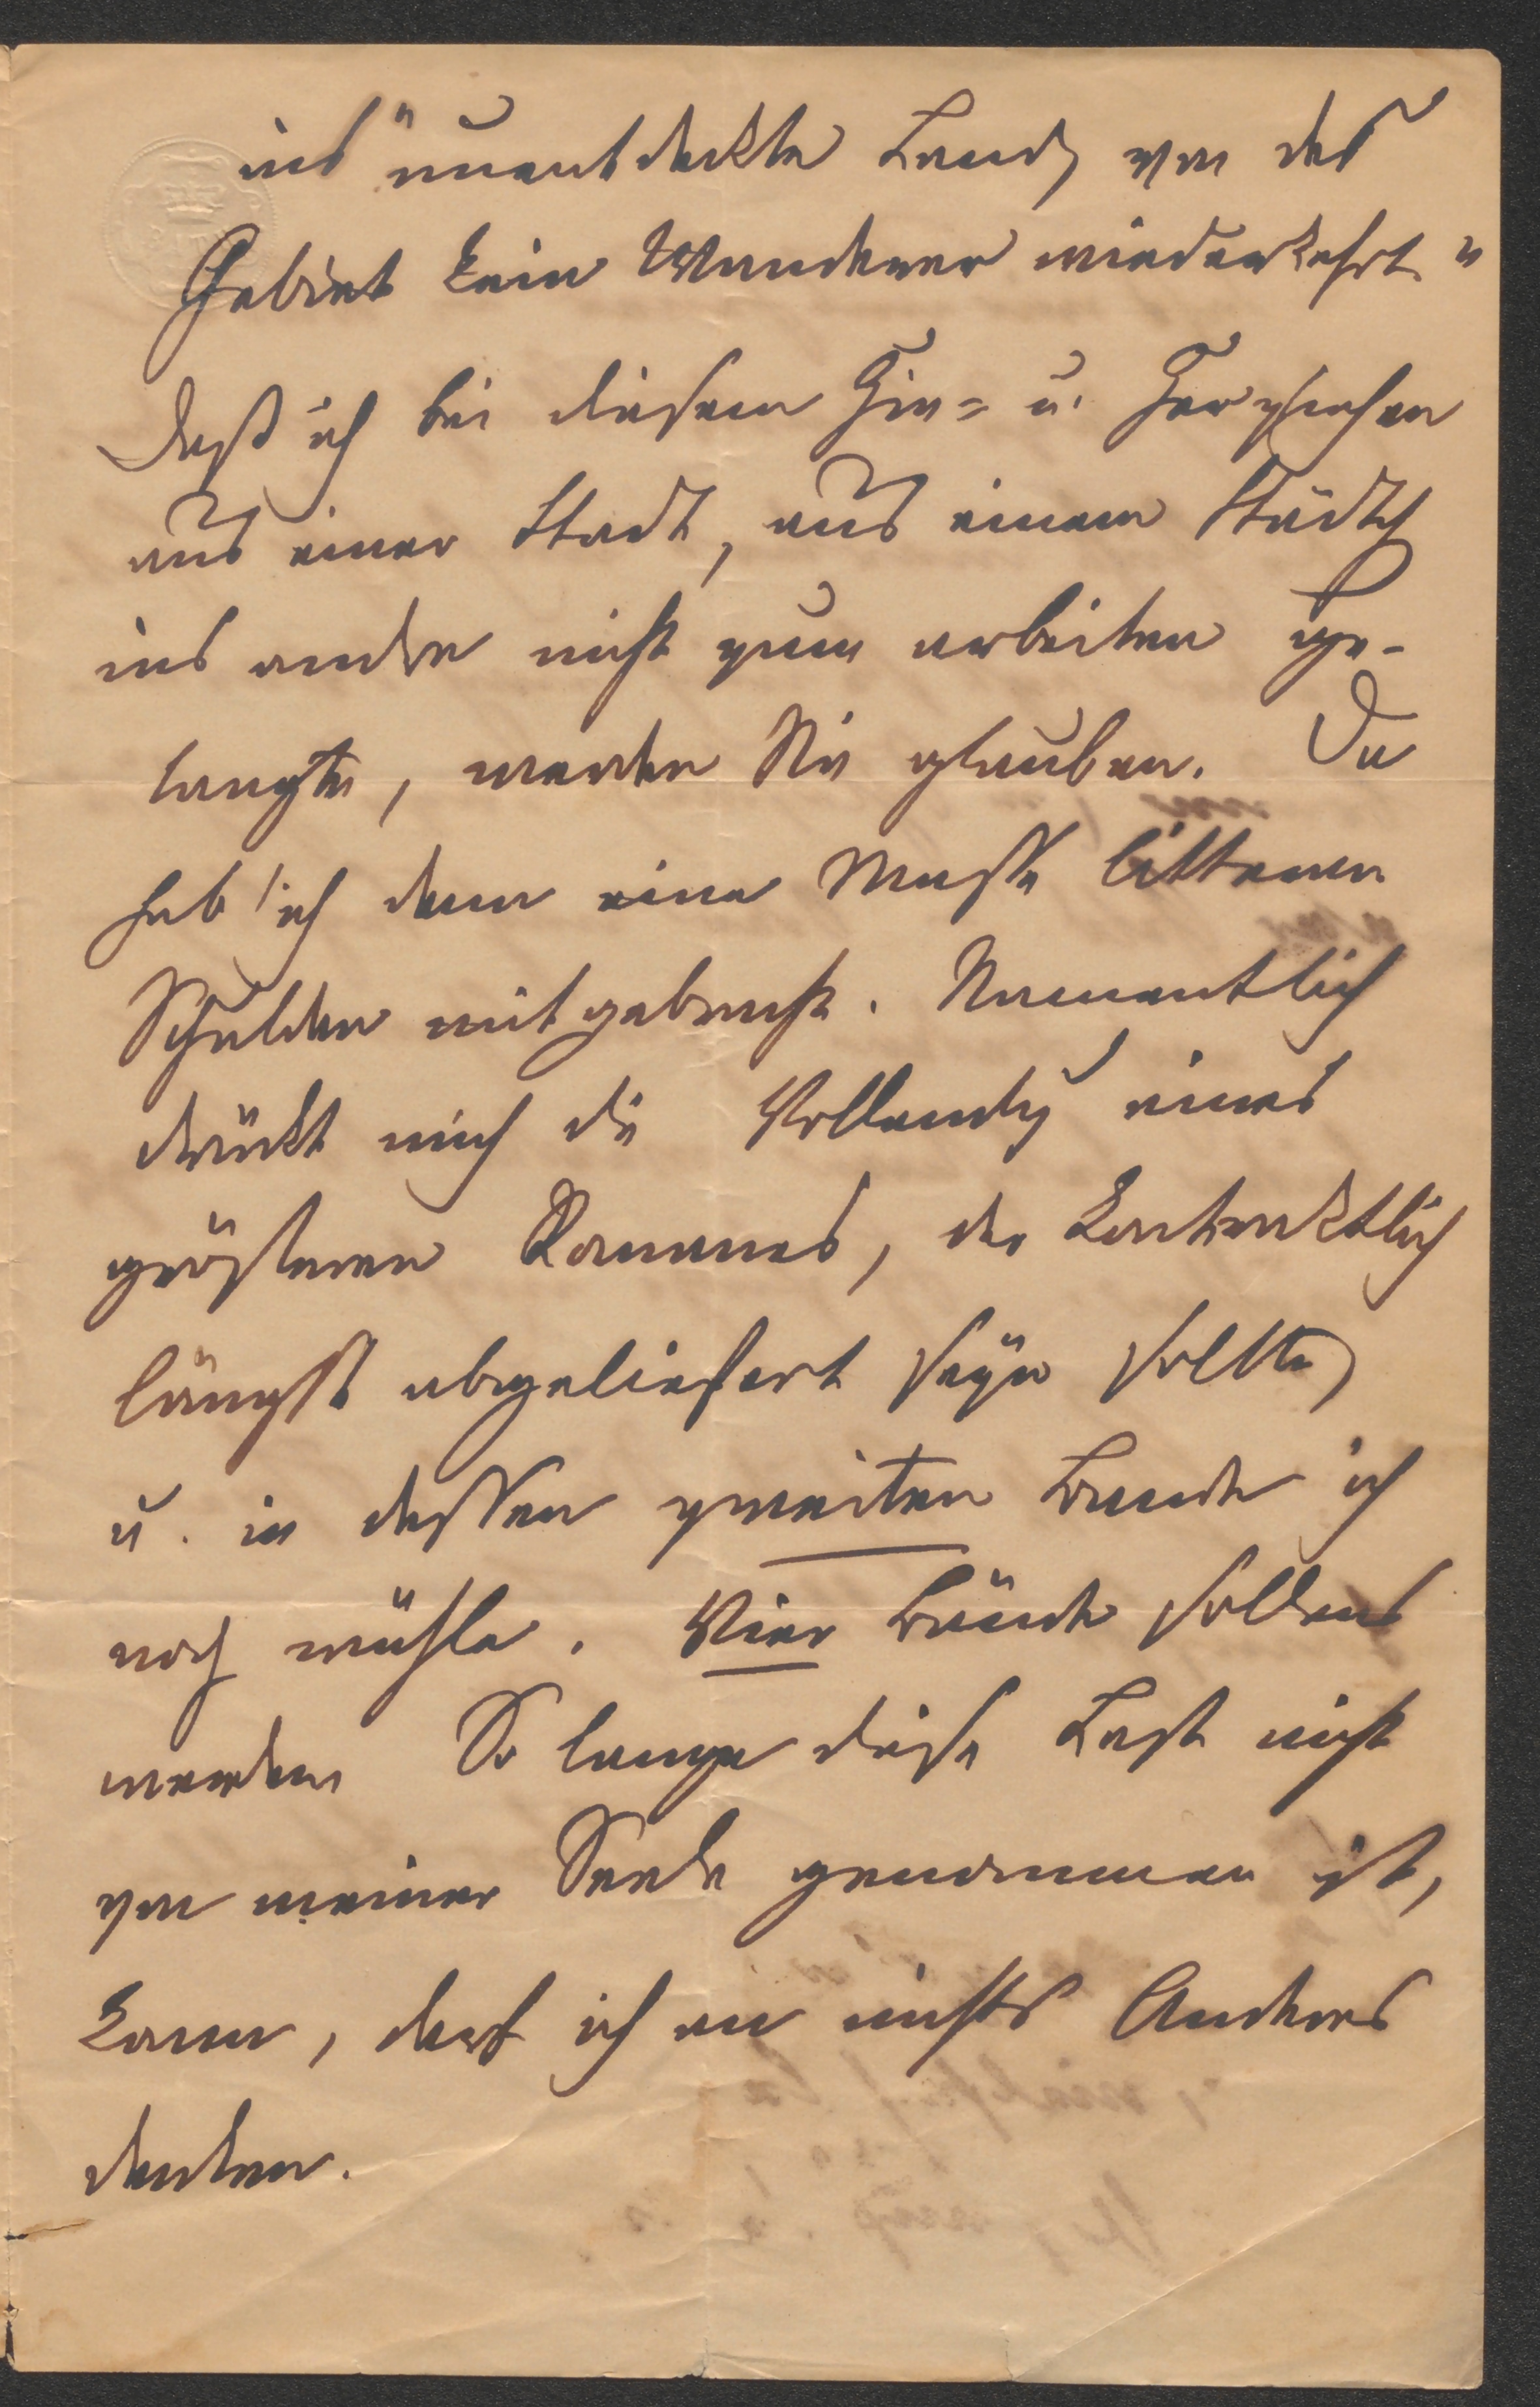 ins "unentdeckte Land, von des
Gebiet kein Wanderer wiederkehrt"
Daß ich bei diesem Hin= u. Herziehen
aus einer Stadt, aus einem Städtch
ins andre nicht zum arbeiten ge-
langte, werden Sie glauben. Da
hab' ich denn eine Masse litterar.
Schulden mitgebracht. Namentlich
drückt mich die Vollendg eines
größeren Romanes, der kontraktlich
längst abgeliefert seyn sollte,
u. in dessen zweiten Bande ich
noch wühle. Vier Bände sollens
werden So lange diese Last nicht
von meiner Seele genommen ist,
kann, darf ich an nichts Anderes
denken.